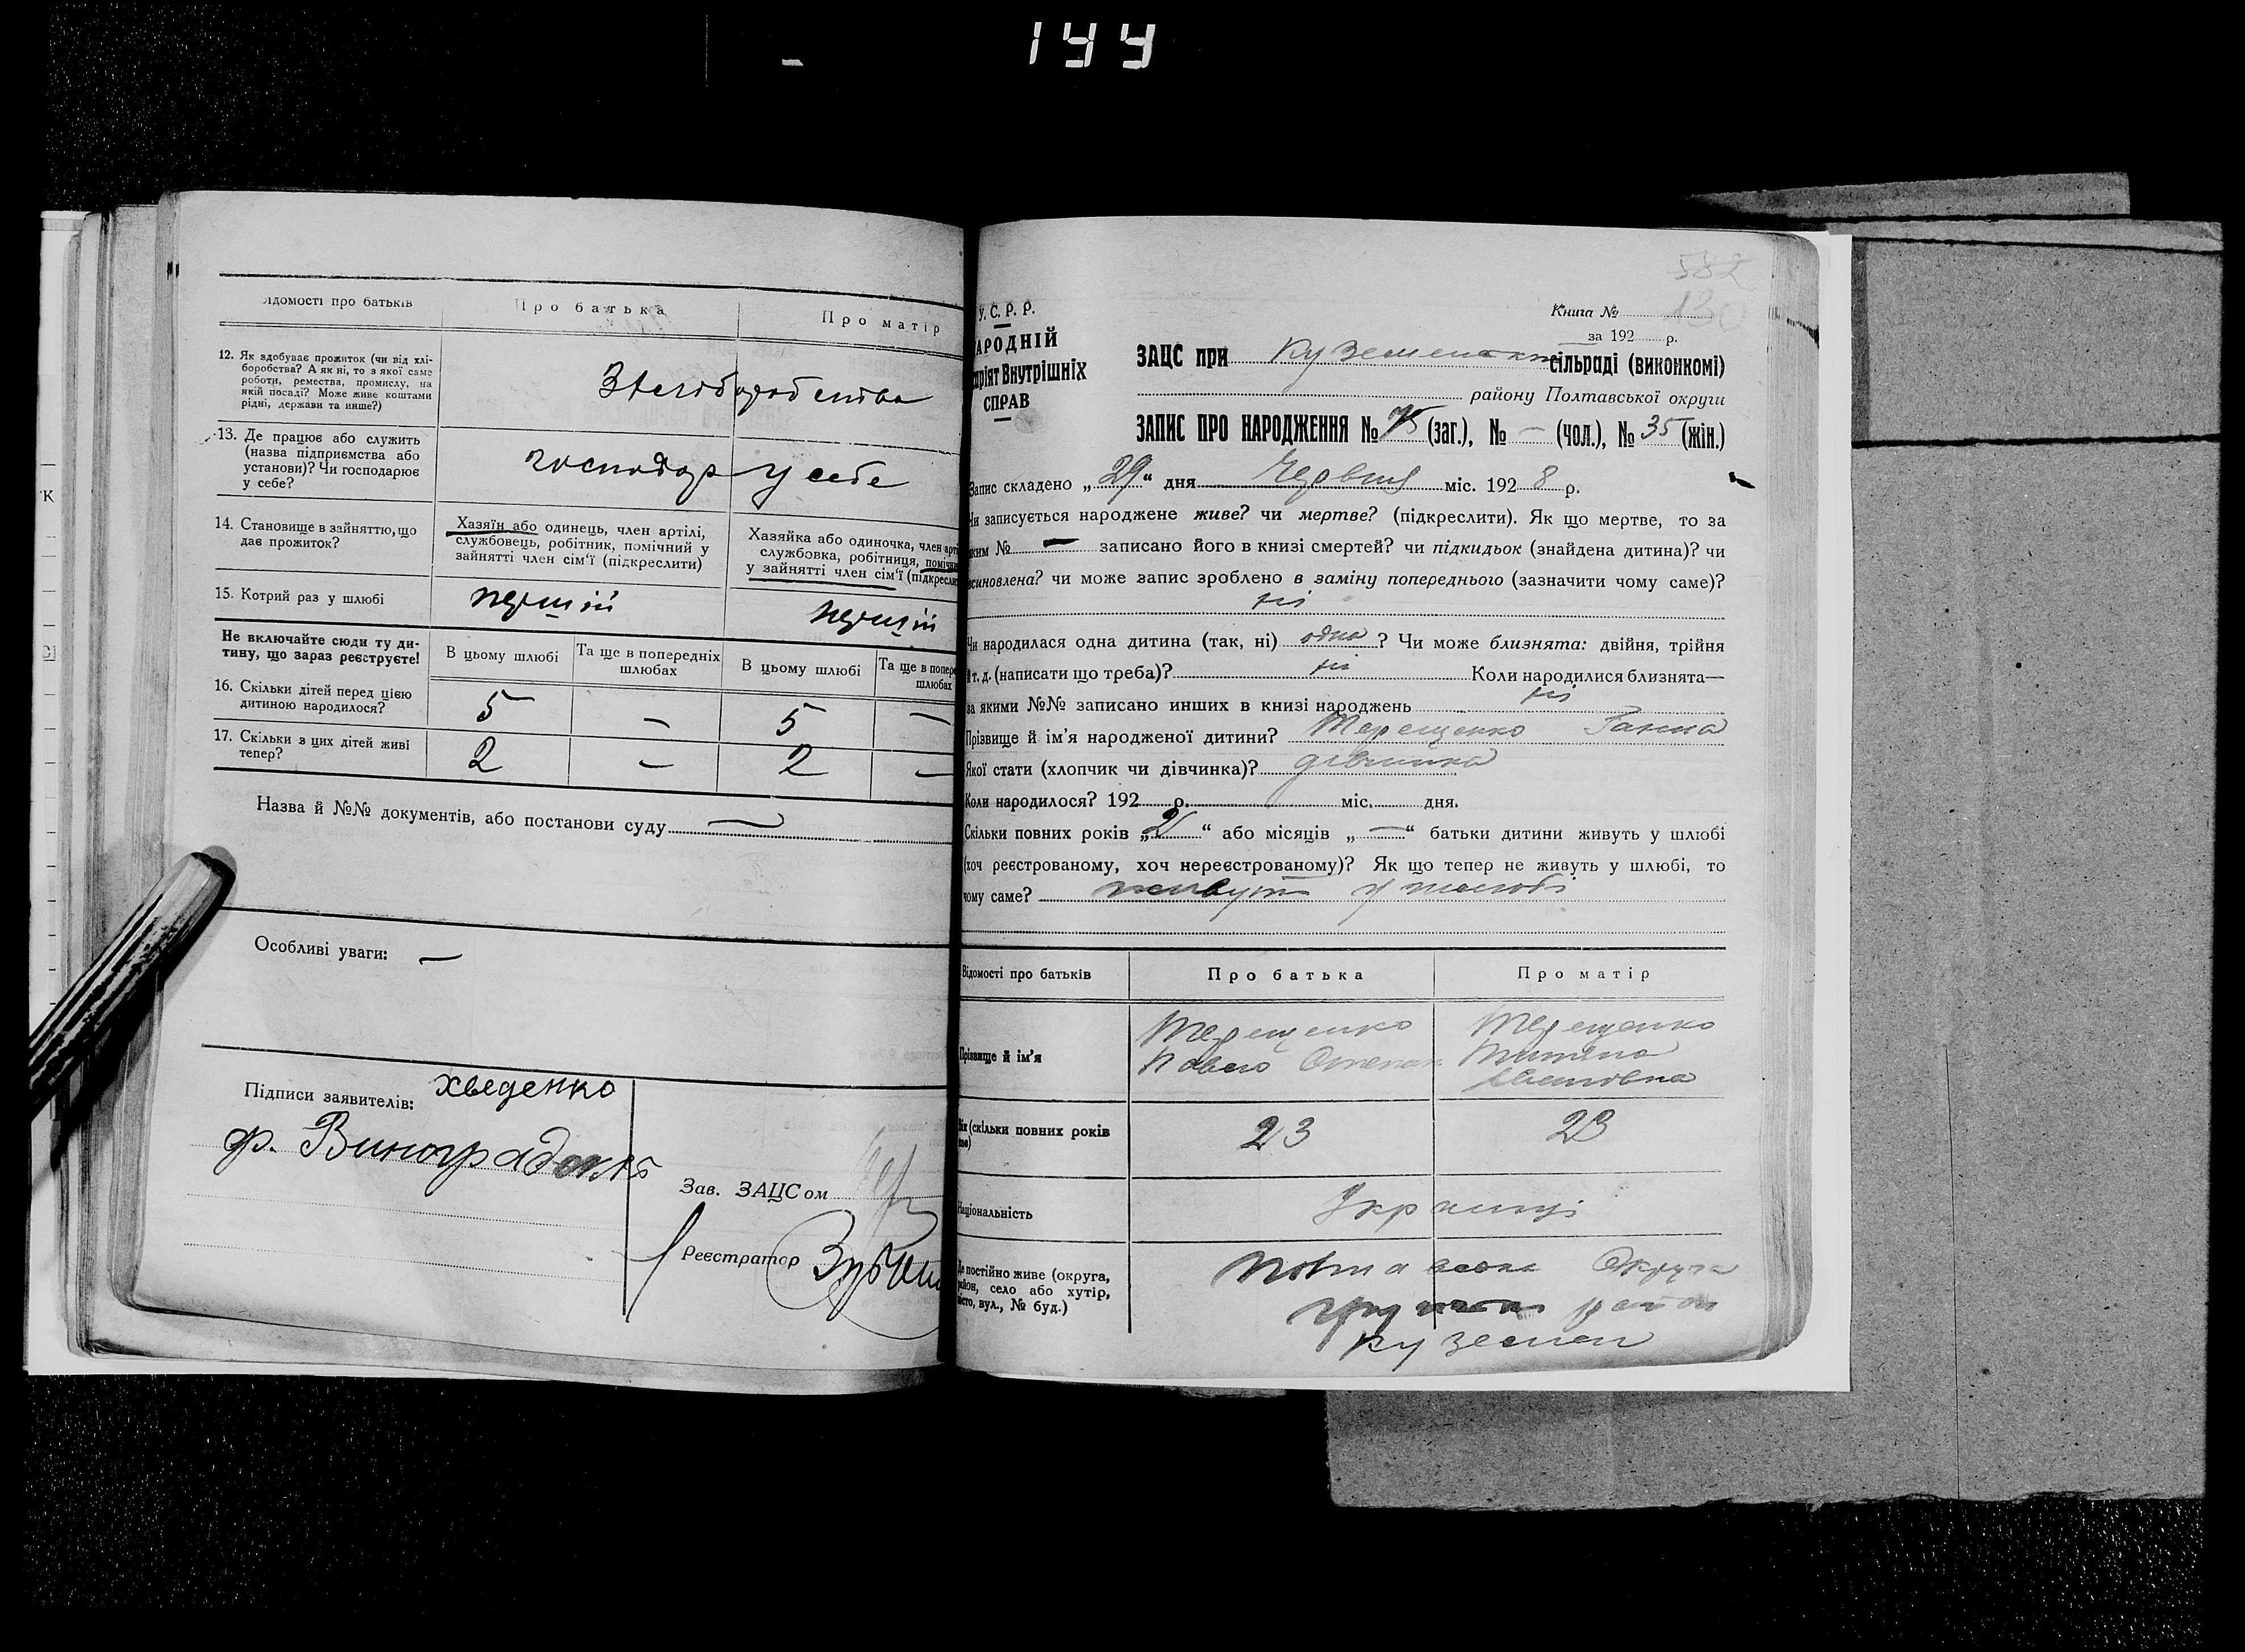 144
Відомості про батьків
Про батька
Про матір
12. Як здобуває прожиток (чи від хлі-
боробства? А як ні, то з якої саме
роботи, ремества, промислу, на
якій посаді? Може живе коштами
рідні, держави та инше?)
13. Де працює або служить
(назва підприємства або
установи)? Чи господарює
у себе?
господар у себе
14. Становище в зайняттю, що
дає прожиток?
Хазяїн або одинець, член артілі,
службовець, робітник, помічний у
зайнятті член сім'ї (підкреслити)
Хазяйка або одиночка, член арт
службовка, робітниця, помічн
у зайнятті член сім'ї (підкресли
15. Котрий раз у шлюбі
першій
першій
Не включайте сюди ту ди-
тину, що зараз реєструєте!
В цьому шлюбі
Та ще в попередніх
шлюбах
В цьому шлюбі
Та ще в попере
шлюбах
16. Скільки дітей перед цією
дитиною народилося?
5 – 5 –
17. Скільки з цих дітей живі
тепер?
2 – 2 –
Назва й №№ документів, або постанови суду —
Особливі уваги: —
Підписи заявителів: хведенко
Зав. ЗАЦСом
Реєстратор
582
130
У.С.Р.Р.
АРОДНІЙ
ріят Внутрішніх
СПРАВ
Книга №
за 192 р.
ЗАЦС при сільраді (виконкомі)
району Полтавської округи
ЗАПИС ПРО НАРОДЖЕННЯ № 75 (заг.), № – (чол.), № 35 (жін.)
Запис складено „29“ дня Червня міс. 1928 р.
Чи записується народжене живе? чи мертве? (підкреслити). Як що мертве, то за
яким № — записано його в книзі смертей? чи підкидьок (знайдена дитина)? чи
усиновлена? чи може запис зроблено в заміну попереднього (зазначити чому саме)?
ні
Чи народилася одна дитина (так, ні) одна? Чи може близнята: двійня, трійня
й т. д. (написати що треба)? ні Коли народилися близнята—
за якими №№ записано инших в книзі народжень ні
Прізвище й ім'я народженої дитини? Терещенко Ганна
Якої стати (хлопчик чи дівчинка)? дівчинка
Коли народилося? 192 р. міс. дня.
Скільки повних років „2“ або місяців „—“ батьки дитини живуть у шлюбі
(хоч реєстрованому, хоч нереєстрованому)? Як що тепер не живуть у шлюбі, то
чому саме? живуть у шлюбі
Відомості про батьків
Про батька
Про матір
Прізвище й ім'я
Терещенко
Павло
Терещенко
(скільки повних років
23
23
Національність
Українці
Де постійно живе (округа,
район, село або хутір,
місто, вул., № буд.)
Округа
район